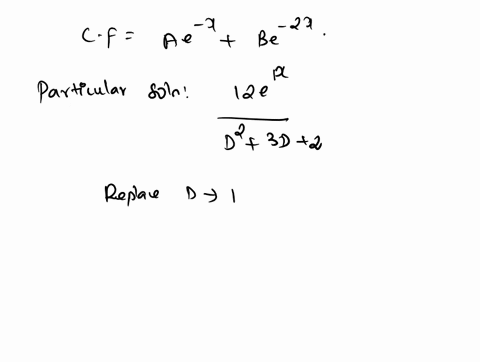 C.F = Ae^{-x} + Be^{-2x}.
Particular Soln: \frac{12e^{1x}}{D^2 + 3D + 2}
Replace D → 1